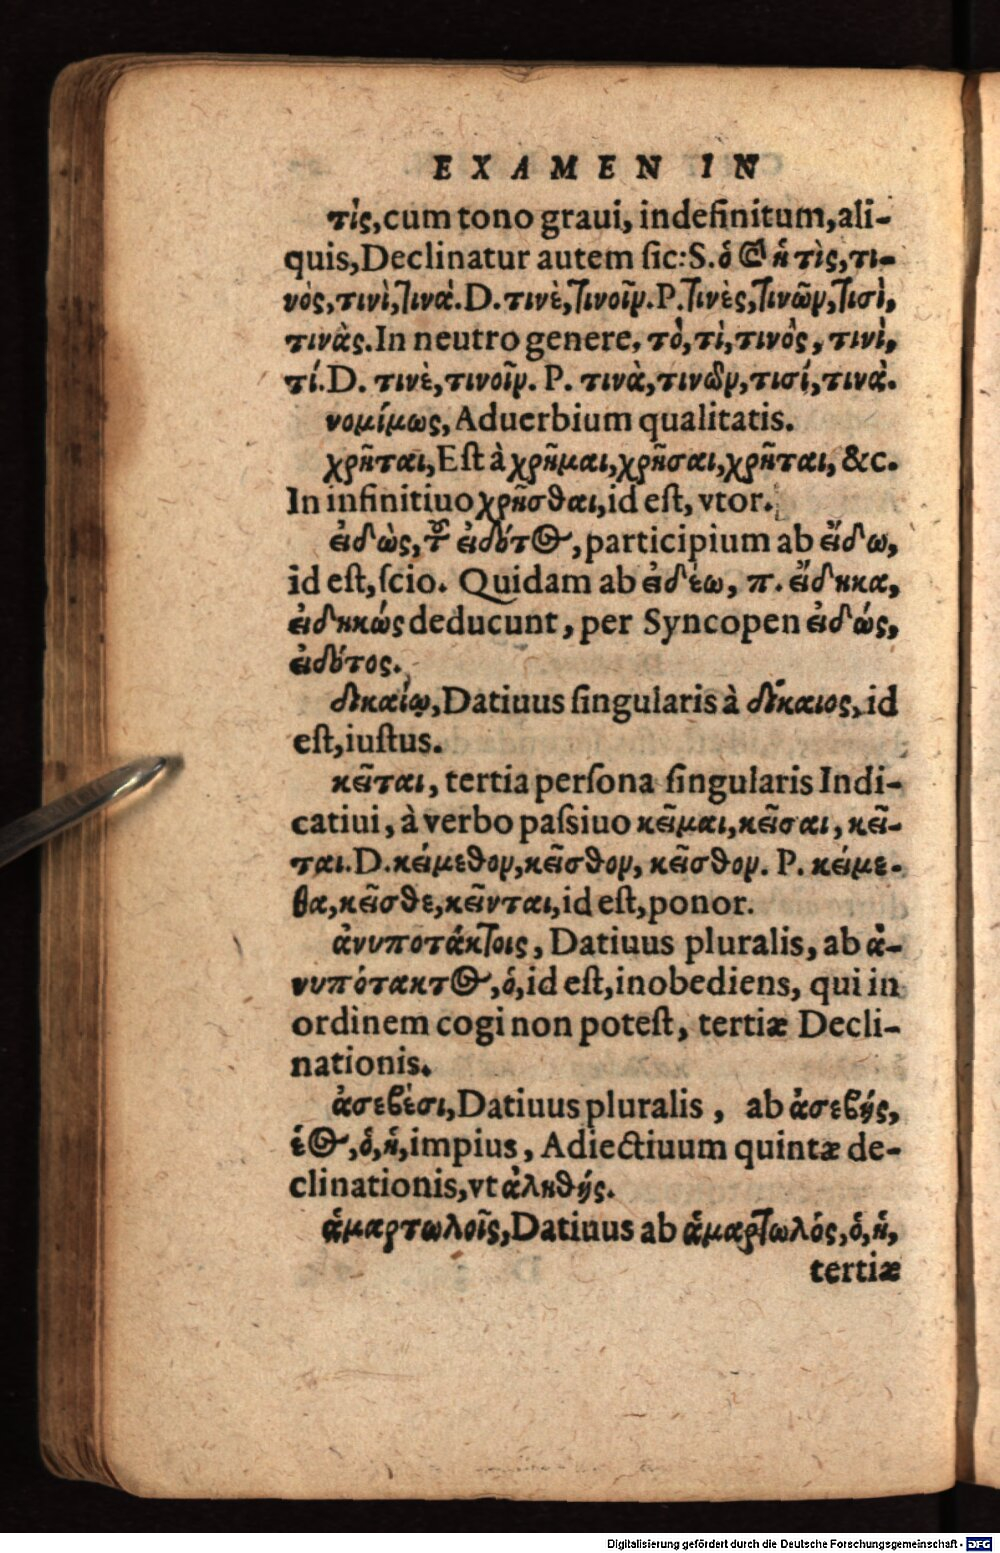 EXAMEN IN
τὶς, cum tono graui, indefinitum, ali-
quis, Declinatur autem sic: S. ὁ καὶ ἡ τὶς, τι-
νὸς, τινὶ, τινὰ. D. τινὲ, τινοῖν. P. τινὲς, τινῶν, τισὶ,
τινὰς. In neutro genere, τὸ, τὶ, τινὸς, τινὶ,
τί. D. τινὲ, τινοῖν. P. τινὰ, τινῶν, τισί, τινὰ.
νομίμως, Aduerbium qualitatis.
χρῆται, Est à χρῆμαι, χρῆσαι, χρῆται, &c.
In infinitiuo χρῆσθαι, id est, vtor.
εἰδὼς, τοῦ εἰδότος, participium ab εἴδω,
id est, scio. Quidam ab εἰδέω, π. εἴδηκα,
εἰδηκώς deducunt, per Syncopen εἰδώς,
εἰδότος.
δικαίῳ, Datiuus singularis à δίκαιος, id
est, iustus.
κεῖται, tertia persona singularis Indi-
catiui, à verbo passiuo κεῖμαι, κεῖσαι, κεῖ-
ται. D. κείμεθον, κεῖσθον, κεῖσθον. P. κείμε-
θα, κεῖσθε, κεῖνται, id est, ponor.
ἀνυποτάκτοις, Datiuus pluralis, ab ἀ-
νυπότακτος, ὁ, id est, inobediens, qui in
ordinem cogi non potest, tertiæ Decli-
nationis.
ἀσεβέσι, Datiuus pluralis, ab ἀσεβής,
έος, ὁ, ἡ, impius, Adiectiuum quintæ de-
clinationis, vt ἀληθής.
ἁμαρτωλοῖς, Datiuus ab ἁμαρτωλός, ὁ, ἡ,
tertiæ
Digitalisierung gefördert durch die Deutsche Forschungsgemeinschaft - DFG